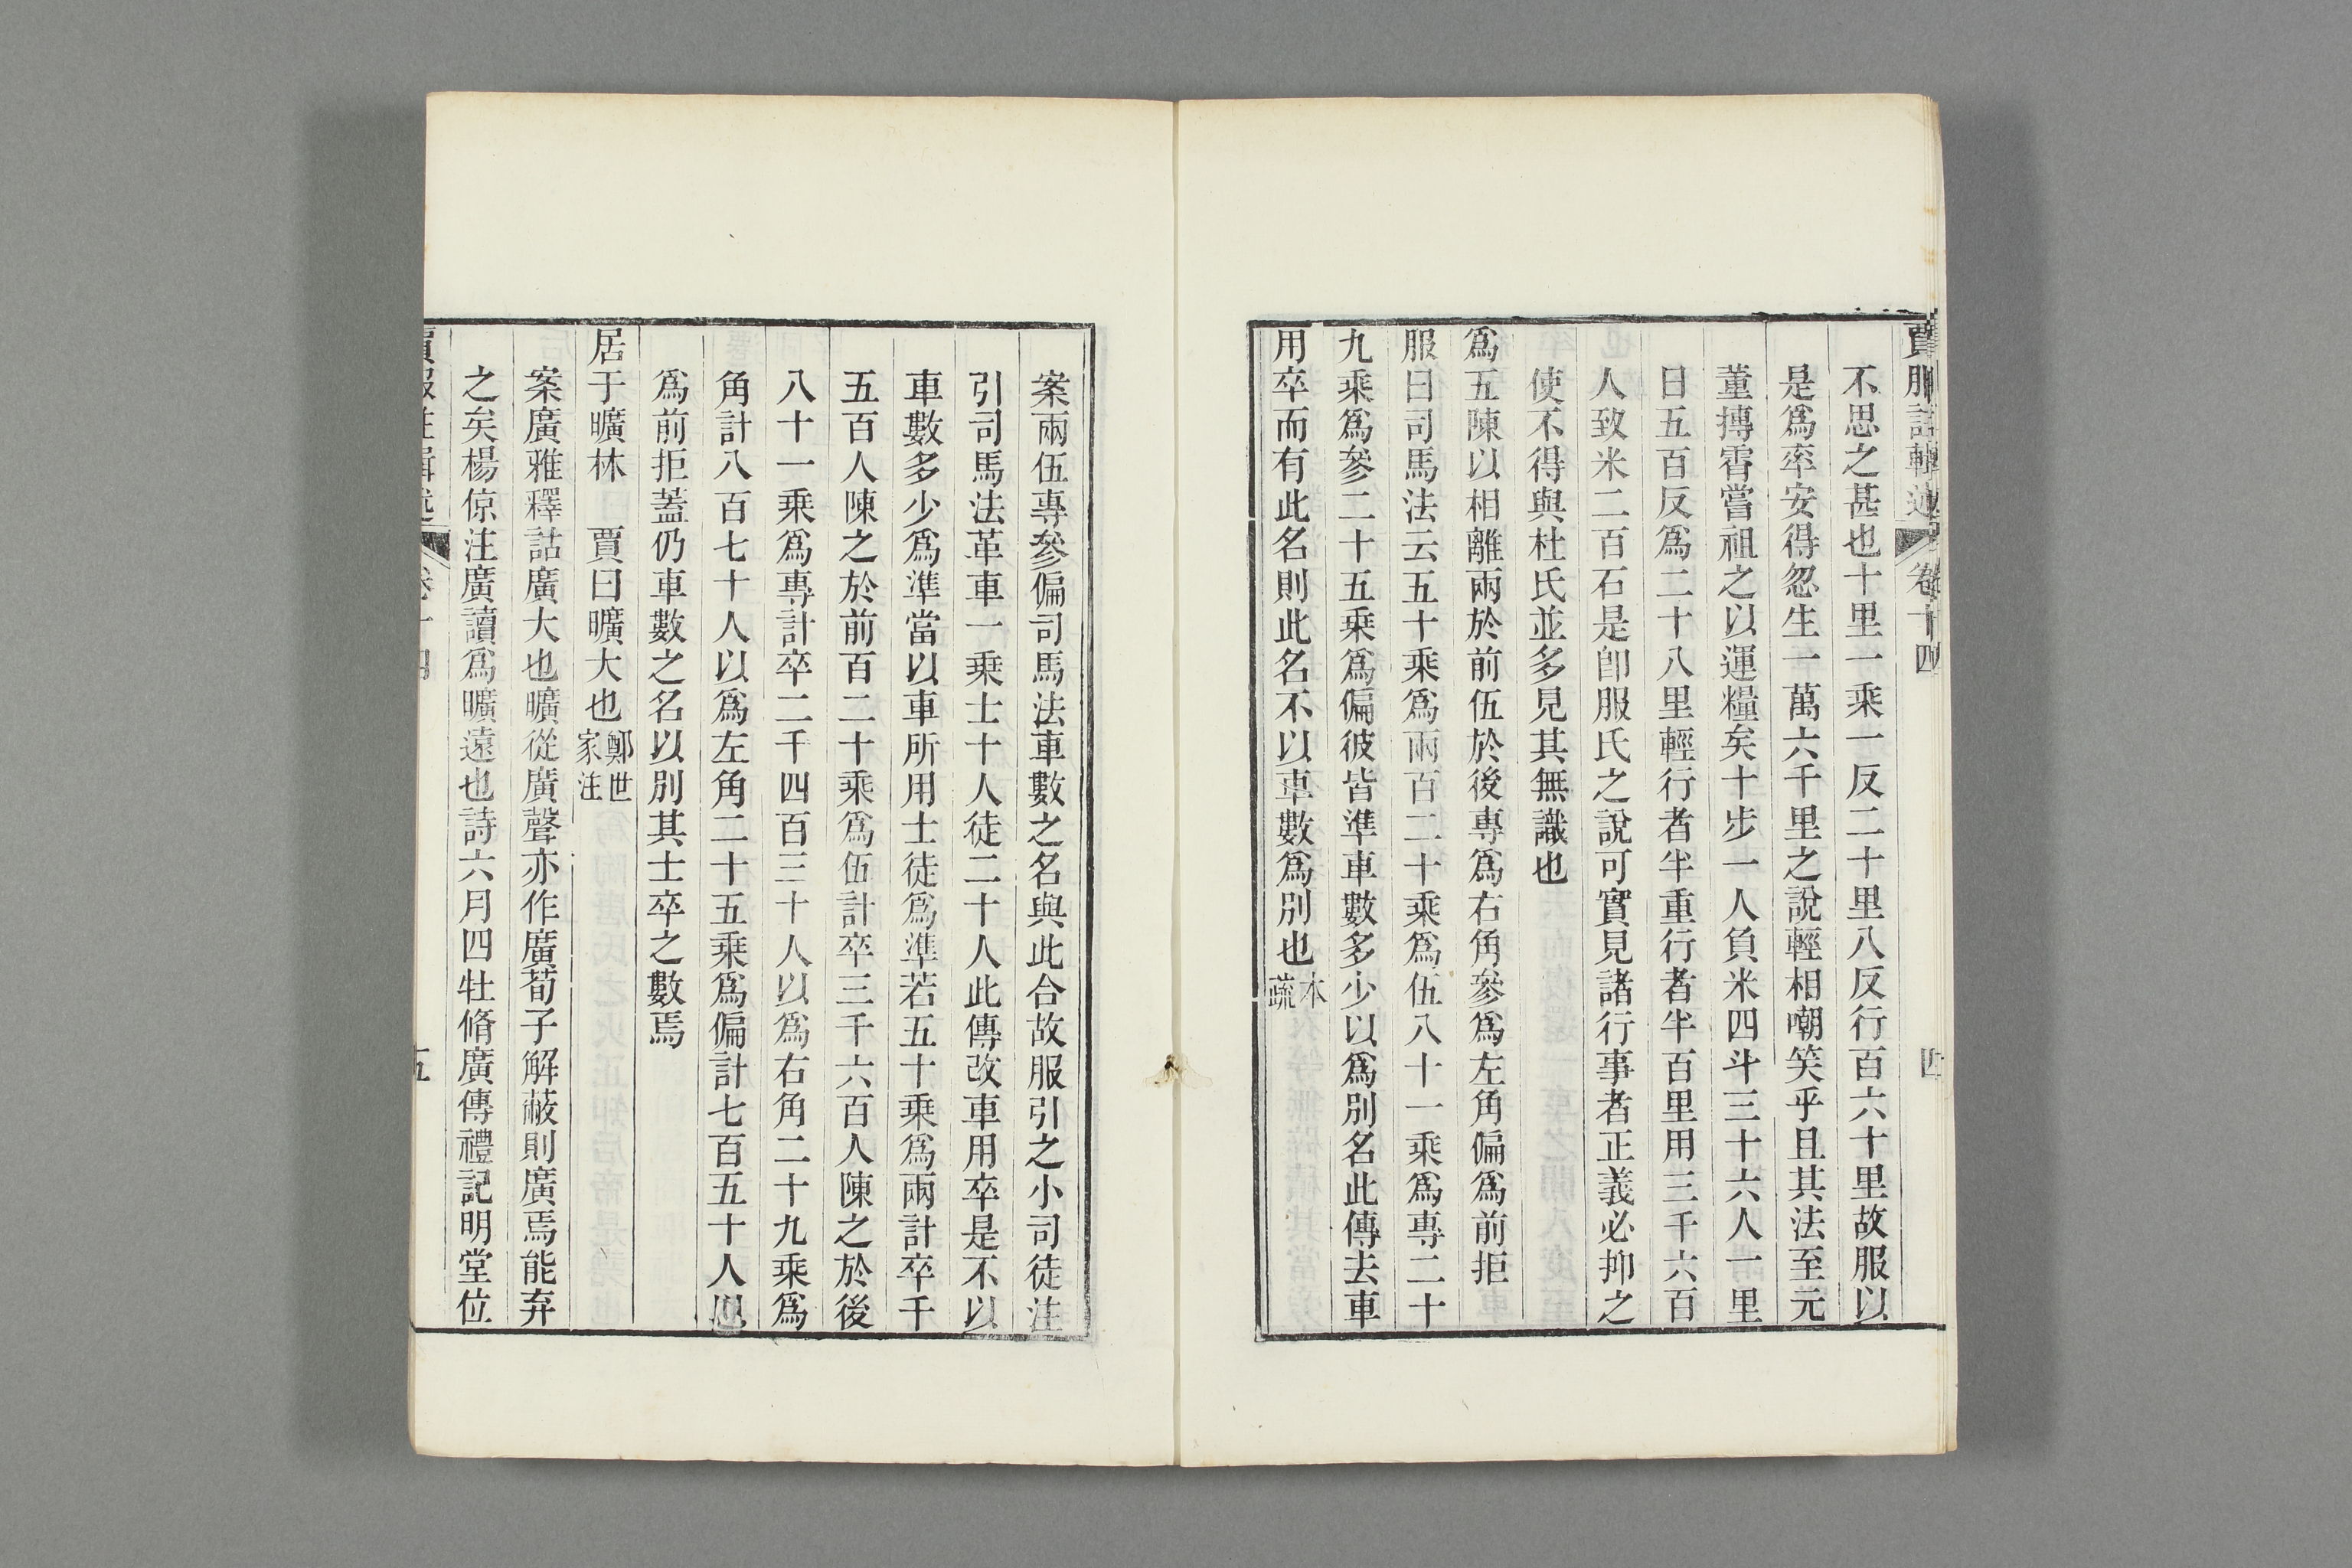 賈服註輯述 卷十四 四
不思之甚也十里一乘一反二十里八反行百六十里故服以
是爲率安得忽生一萬六千里之說輕相嘲笑乎且其法至元
董摶霄嘗祖之以運糧矣十步一人負米四斗三十六人一里
日五百反爲二十八里輕行者半重行者半百里用三千六百
人致米二百石是卽服氏之說可實見諸行事者正義必抑之
使不得與杜氏並多見其無識也
爲五陳以相離兩於前伍於後專爲右角參爲左角偏爲前拒
服曰司馬法云五十乘爲兩百二十乘爲伍八十一乘爲專二十
九乘爲參二十五乘爲偏彼皆準車數多少以爲別名此傳去車
用卒而有此名則此名不以車數爲別也本疏
案兩伍專參偏司馬法車數之名與此合故服引之小司徒注
引司馬法革車一乘士十人徒二十人此傳改車用卒是不以
車數多少爲準當以車所用士徒爲準若五十乘爲兩計卒千
五百人陳之於前百二十乘爲伍計卒三千六百人陳之於後
八十一乘爲專計卒二千四百三十人以爲右角二十九乘爲
角計八百七十人以爲左角二十五乘爲偏計七百五十人也
爲前拒蓋仍車數之名以別其士卒之數焉
居于曠林 賈曰曠大也鄭世家注
案廣雅釋詁廣大也曠從廣聲亦作廣荀子解蔽則廣焉能弃
之矣楊倞注廣讀爲曠遠也詩六月四牡脩廣傳禮記明堂位
賈服注輯述 卷十四 五